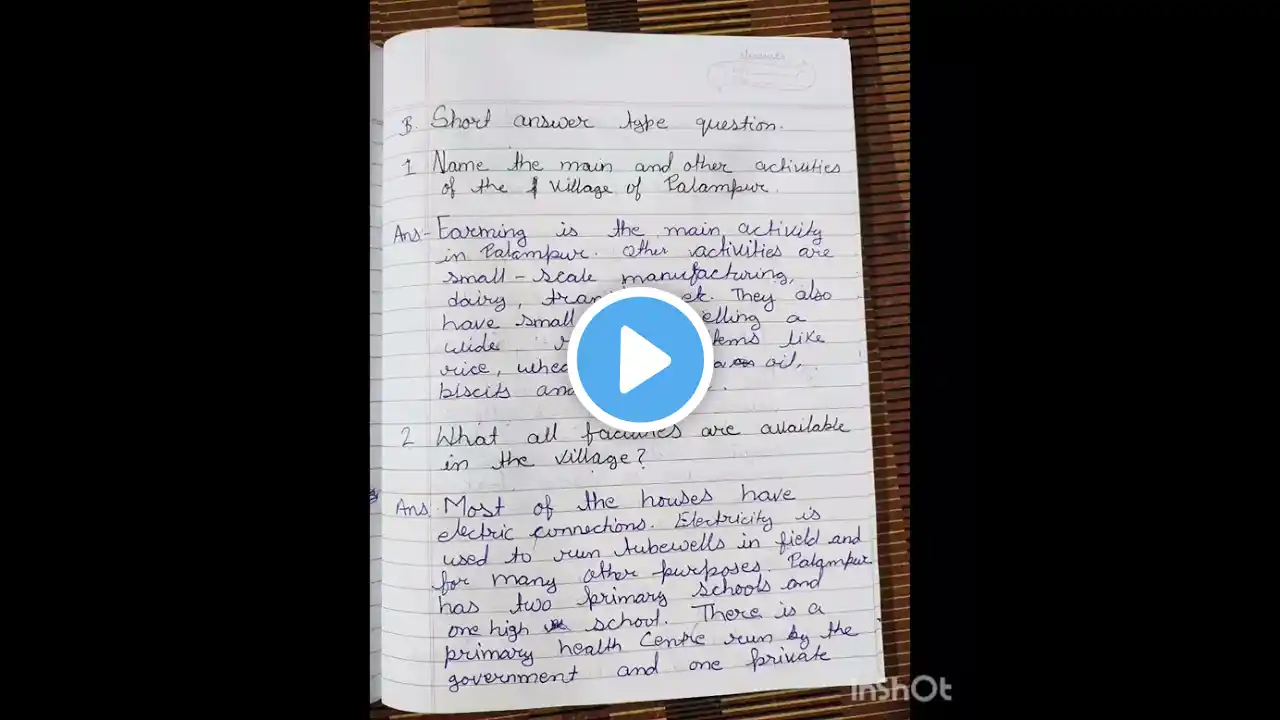 B. Short answer type question.
1 Name the main and other activities
of the village of Palampur.
Ans- Farming is the main activity
in Palampur. Other activities are
small-scale manufacturing,
dairy, etc. They also
have small a
wide like
rice, oil,
biscits
2 What all are available
in the village?
Ans. Most of the houses have
electric connections. Electricity is
used to run tubewells in field and
for many other purposes. Palampur
has two primary schools and
one high school. There is a
primary health Centre run by the
government and one private
InShOt